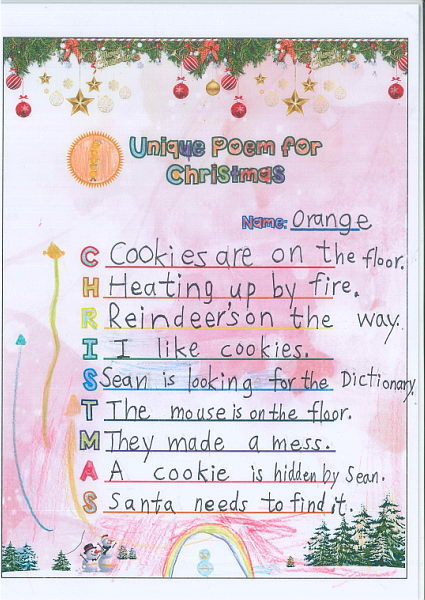 Unique Poem for
Christmas
Name: Orange
C Cookies are on the floor.
H Heating up by fire.
R Reindeer's on the way.
I I like cookies.
S Sean is looking for the Dictionary.
T The mouse is on the floor.
M They made a mess.
A A cookie is hidden by Sean.
S Santa needs to find it.